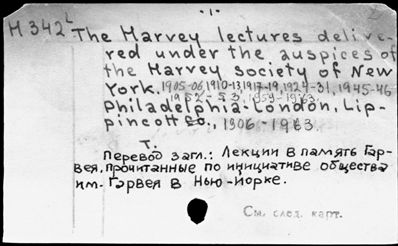 - 1 -
H 342 L
The Harvey lectures delive-
red under the auspices of
the Harvey society of New
York. 1905-06, 1910-13, 1917-19, 1924-31, 1945-46
1952-53, 1959-1963.
Philadelphia-London, Lip-
pincott Co., 1906-1963.
Т.
Перевод загл.: Лекции в память Гар-
вея, прочитанные по инициативе общества
им. Гарвея в Нью-Йорке.
См. след. карт.